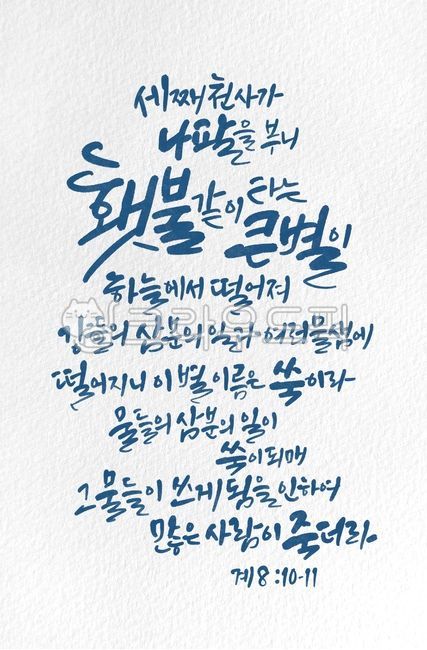 세째 천사가
나팔을 부니
횃불같이 타는
큰별이
하늘에서 떨어져
강들의 삼분의 일과 여러물샘에
떨어지니 이 별 이름은 쑥이라
물들의 삼분의 일이
쑥이되매
그 물들이 쓰게 됨을 인하여
많은 사람이 죽더라.
계8:10-11
크라우드픽